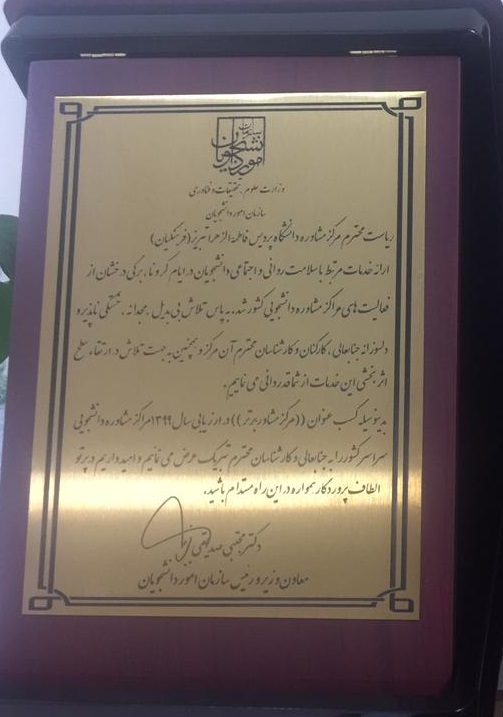 سازمان امور دانشجویان
وزارت علوم، تحقیقات و فناوری
سازمان امور دانشجویان
ریاست محترم مرکز مشاوره دانشگاه پردیس فاطمة الزهرا تبریز (فرهنگیان)
ارائه خدمات مرتبط با سلامت روانی و اجتماعی دانشجویان در ایام کرونا، برگی درخشان از
فعالیت های مراکز مشاوره دانشجویی کشور شد. به پاس تلاش بی بدیل، مجدانه، خستگی ناپذیر و
دلسوزانه جنابعالی، کارکنان و کارشناسان محترم آن مرکز و همچنین به جهت تلاش در ارتقاء سطح
اثر بخشی این خدمات از شما قدردانی می نماییم.
بدینوسیله کسب عنوان ((مرکز مشاور برتر)) در ارزیابی سال ۱۳۹۹ مراکز مشاوره دانشجویی
سراسر کشور را به جنابعالی و کارشناسان محترم تبریک عرض می نمائیم و امید داریم در پرتو
الطاف پروردگار همواره در این راه مستدام باشید.
دکتر مجتبی صدیقی
معاون وزیر و رئیس سازمان امور دانشجویان